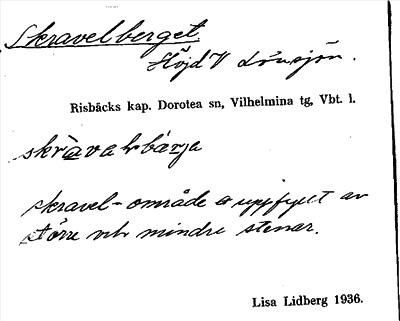 Skravelberget
Höjd V Lövsjön.
Risbäcks kap. Dorotea sn, Vilhelmina tg, Vbt. l.
skràvahbärja
skravel-område är uppfyllt av
större och mindre stenar.
Lisa Lidberg 1936.